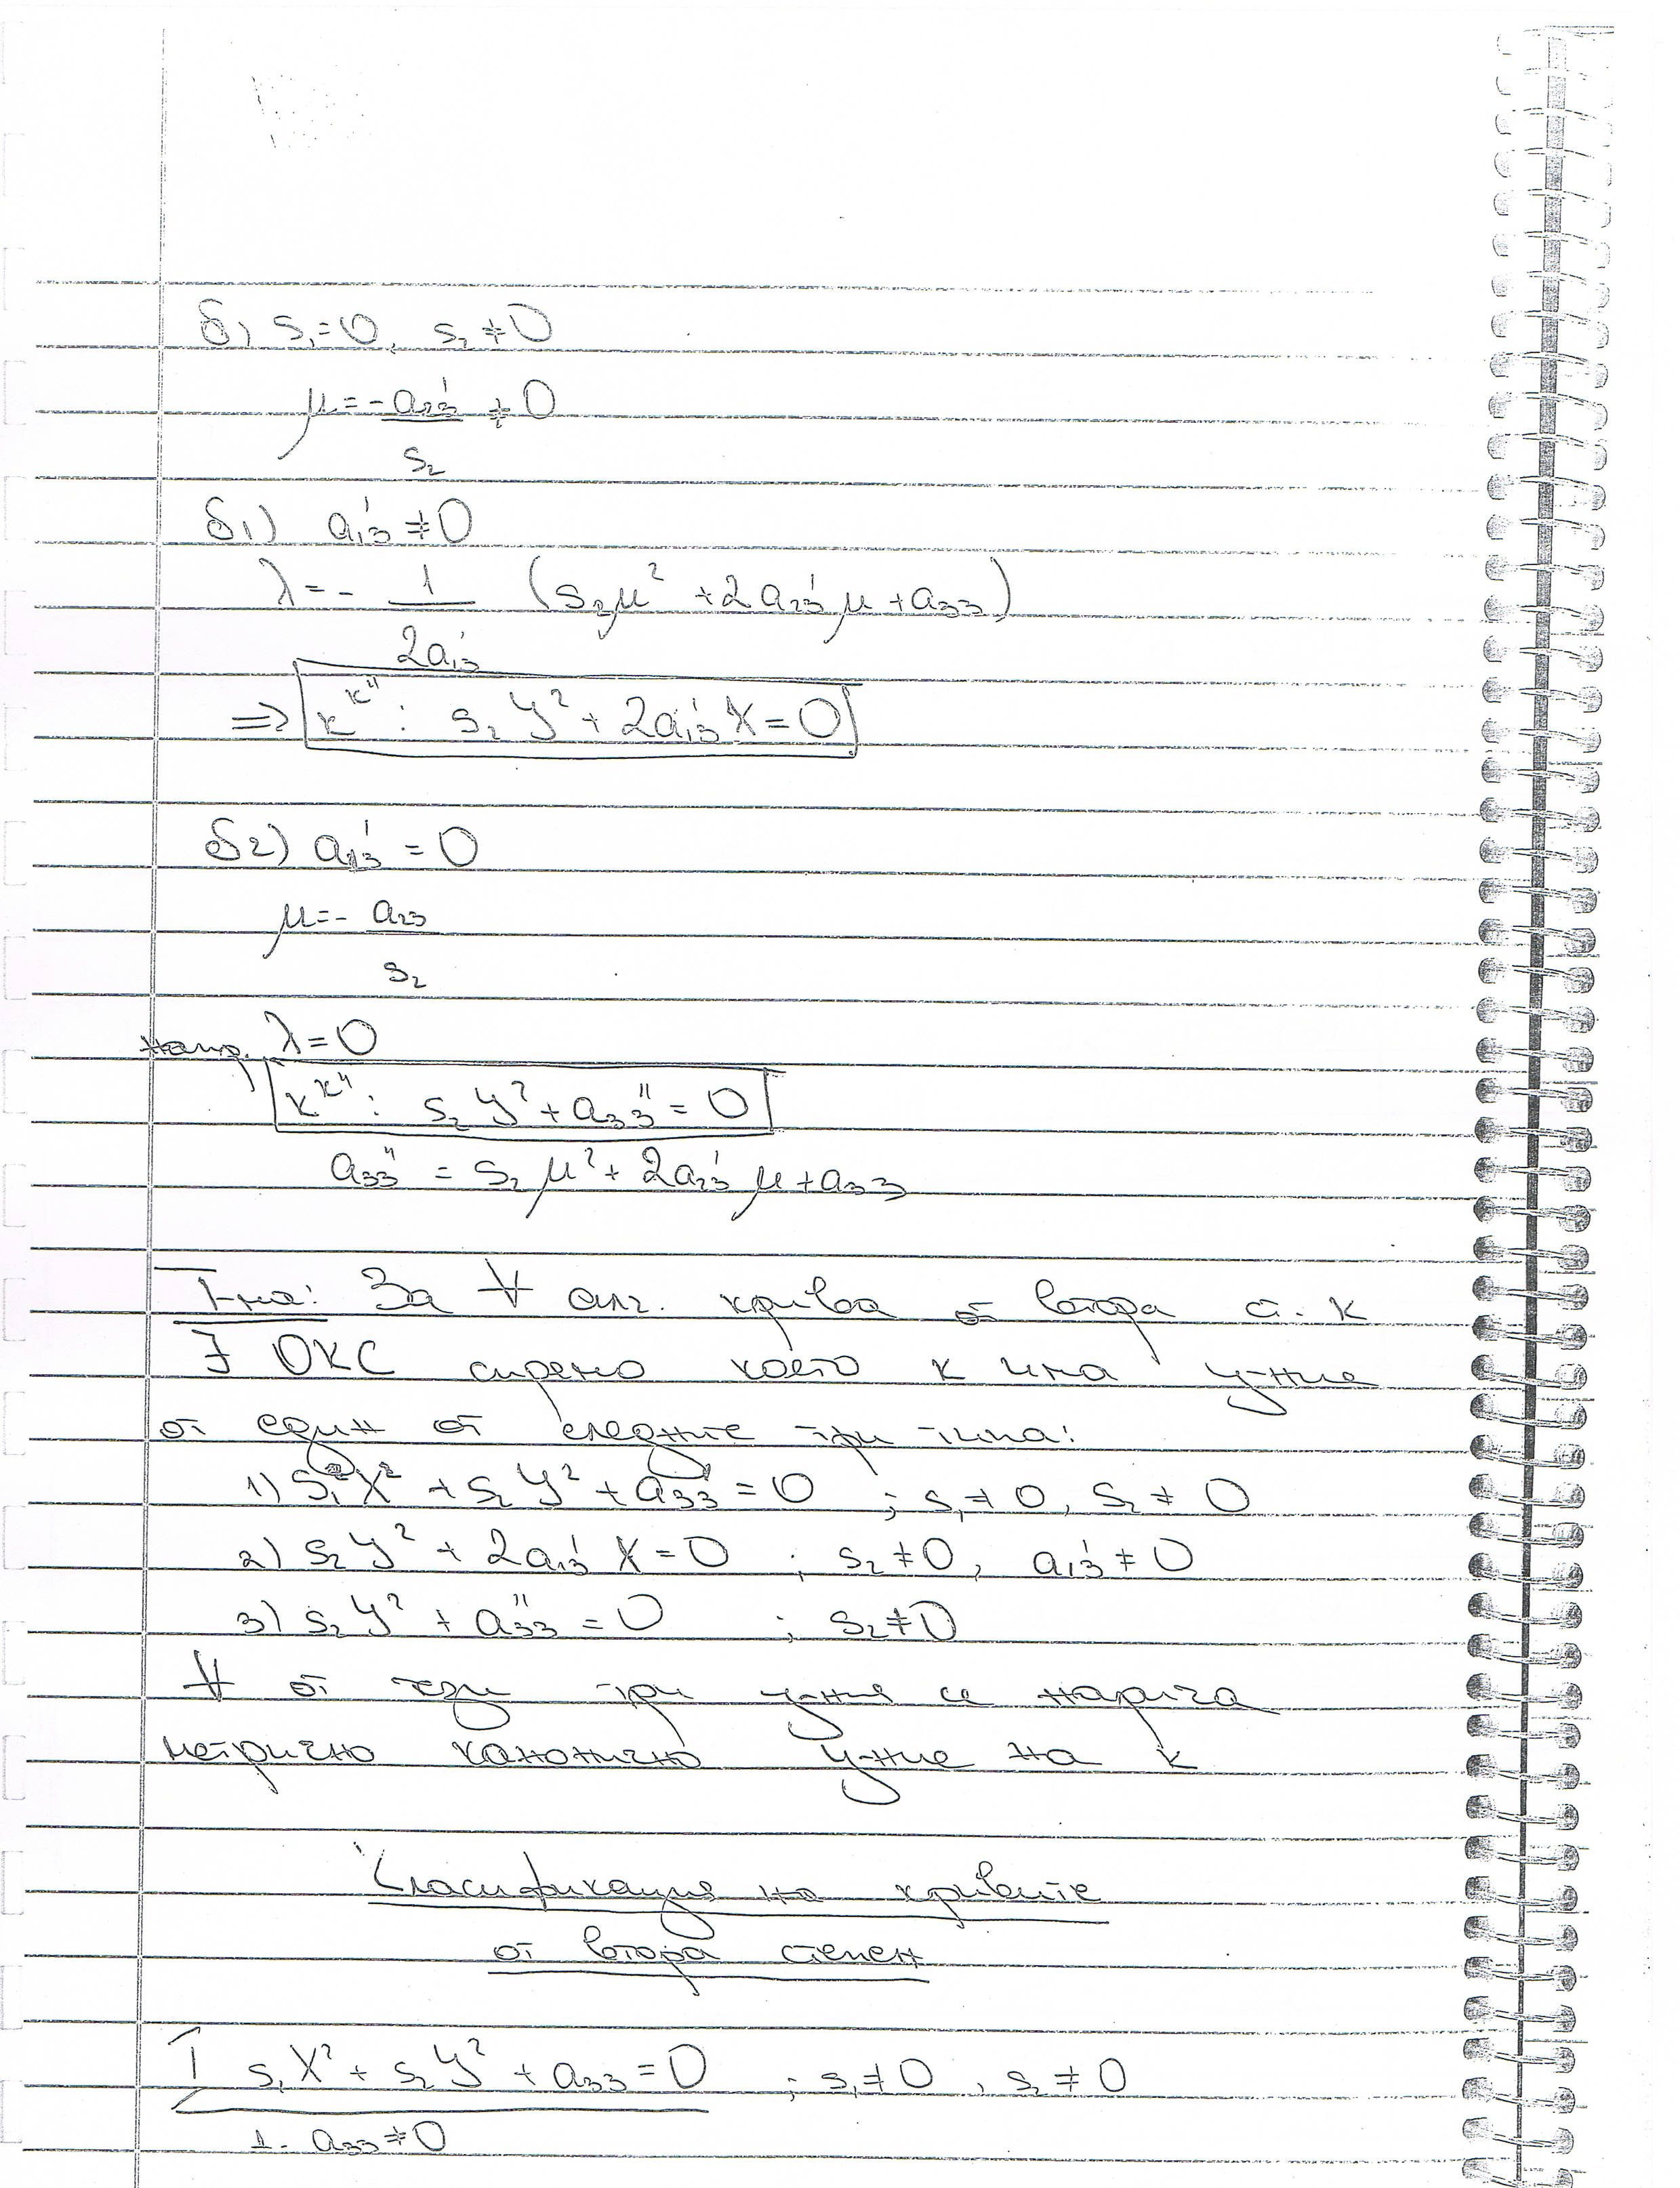 б) s₁=0, s₂≠0
μ = - a₂₃' / s₂ ≠ 0
б1) a₁₃' ≠ 0
λ = - 1 / 2a₁₃' (s₂μ² + 2a₂₃'μ + a₃₃)
=> k^K'': s₂Y² + 2a₁₃'X = 0
б2) a₁₃' = 0
μ = - a₂₃ / s₂
напр. λ = 0
k^K'': s₂Y² + a₃₃'' = 0
a₃₃'' = s₂μ² + 2a₂₃'μ + a₃₃
Т-ма: За ∀ алг. крива от втора ст. k
∃ ОКС спрямо която k има у-ние
от един от следните три типа:
1) s₁X² + s₂Y² + a₃₃'' = 0 ; s₁≠0, s₂≠0
2) s₂Y² + 2a₁₃'X = 0 ; s₂≠0, a₁₃'≠0
3) s₂Y² + a₃₃'' = 0 ; s₂≠0
∀ от тези три у-ния се нарича
метрично канонично у-ние на k
Класификация на кривите
от втора степен
I s₁X² + s₂Y² + a₃₃ = 0 ; s₁≠0, s₂≠0
1. a₃₃≠0